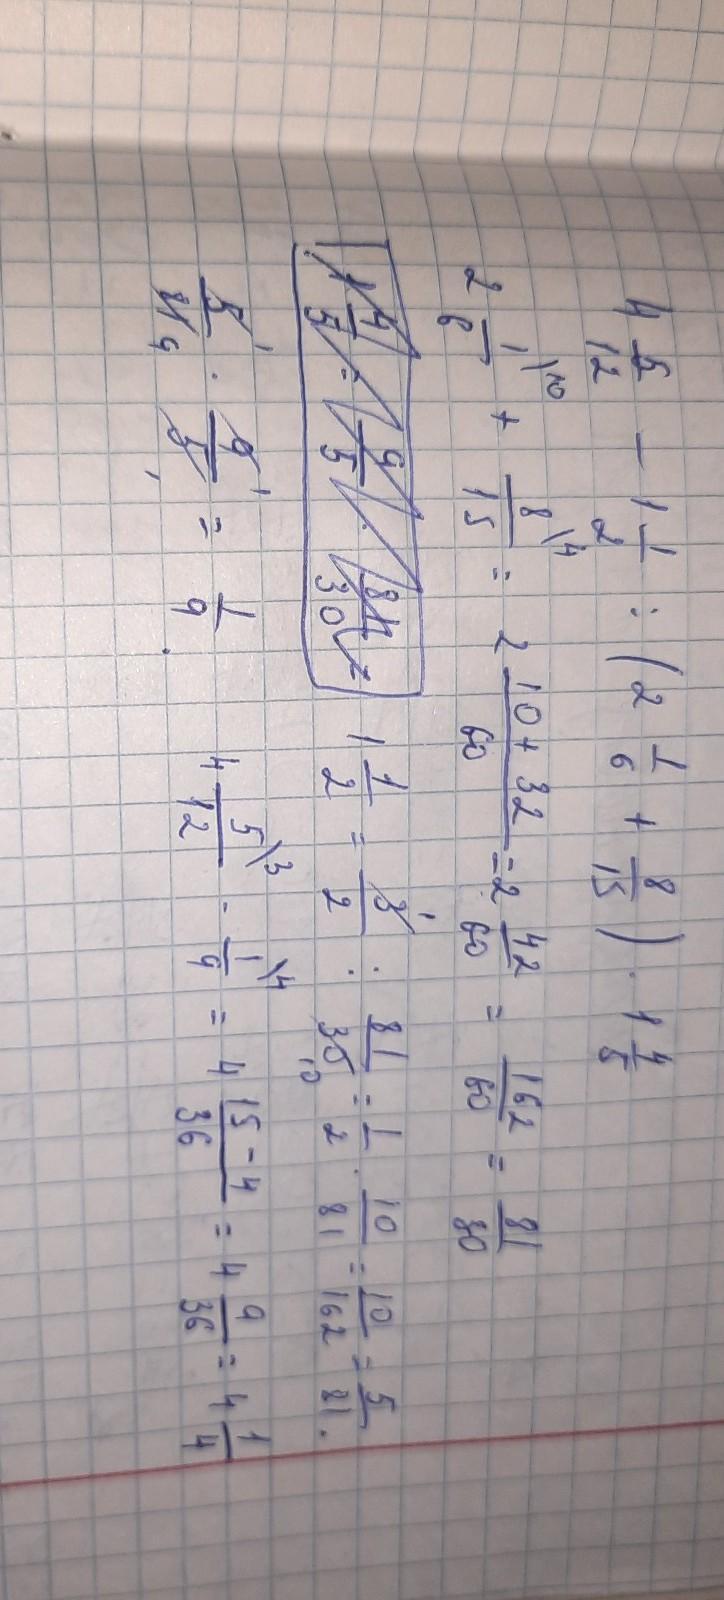 4 5/12 - 1 1/2 : (2 1/6 + 8/15) · 1 4/5
2 1/6 \10 + 8/15 \4 = 2 10+32/60 = 2 42/60 = 162/60 = 81/30
1 4/5 = 9/5 : 81/30 =
1 1/2 = 3/2 : 81/30 = 1/2 · 10/81 = 10/162 = 5/81.
5/81 · 9/5 = 1/9.
4 5/12 \3 - 1/9 \4 = 4 15-4/36 = 4 9/36 = 4 1/4